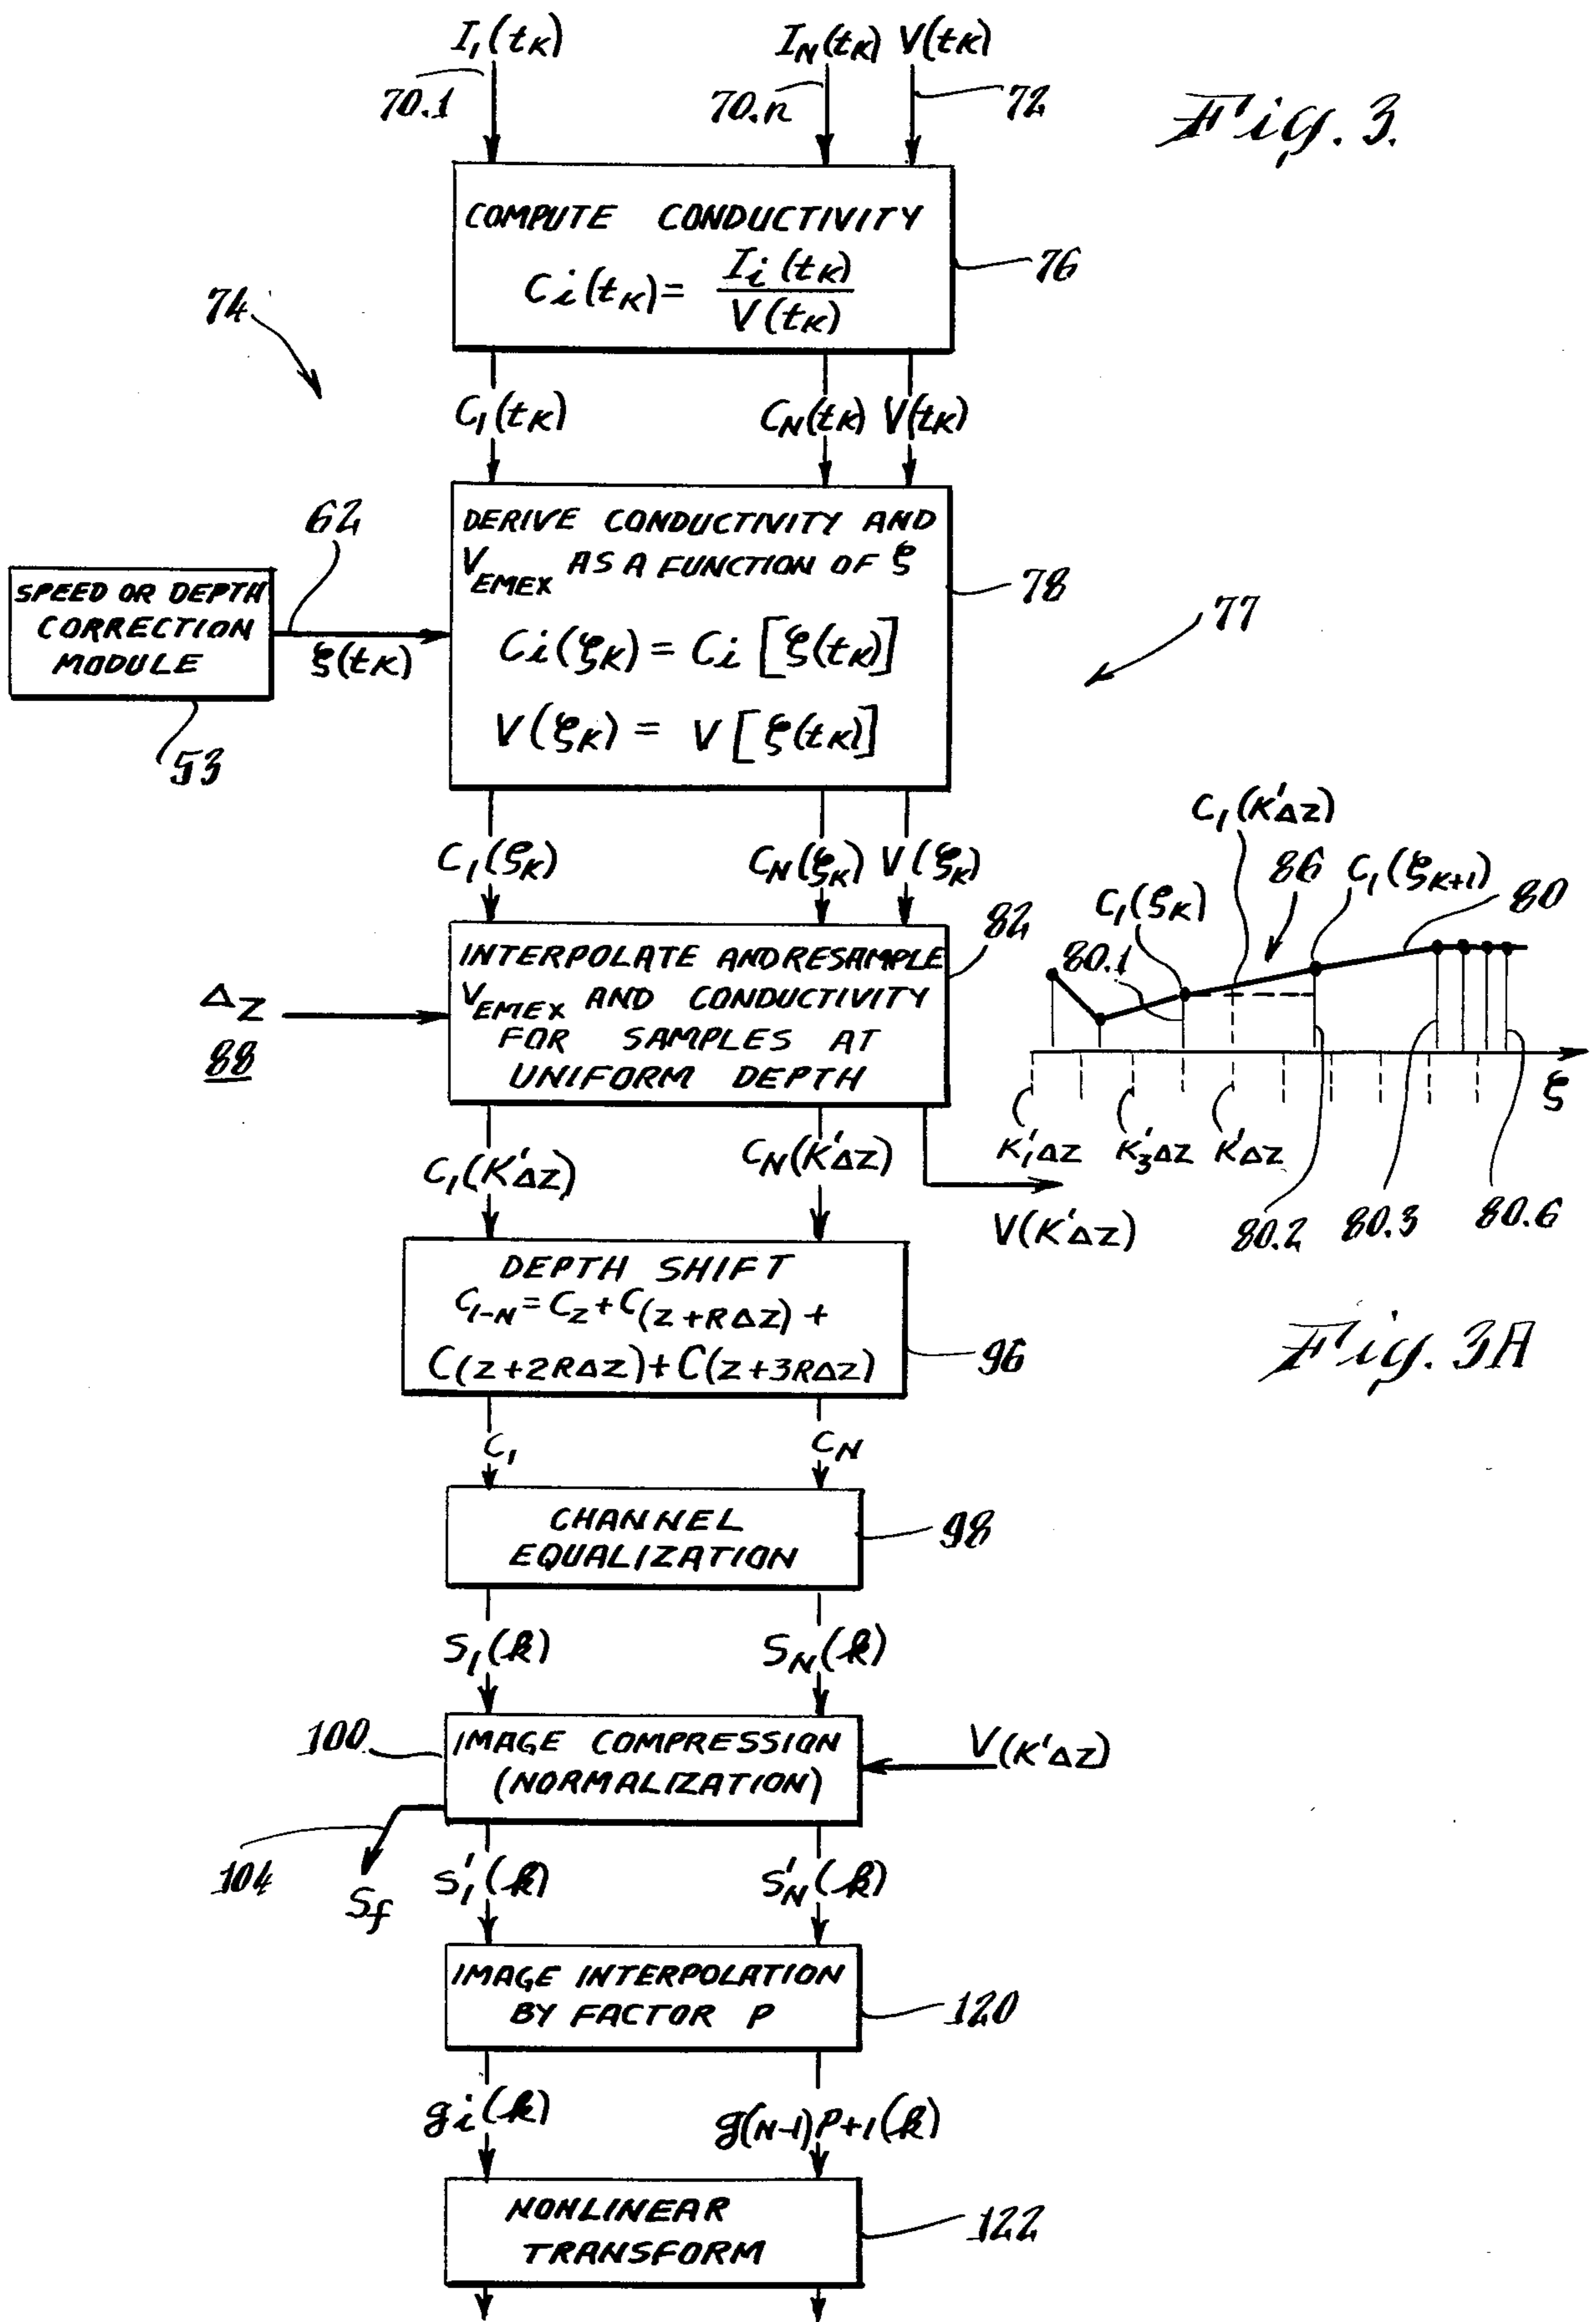 I₁(tK) I_N(tK) V(tK)
70.1 70.n 72
Fig. 3.
COMPUTE CONDUCTIVITY
Ci(tK) = Ii(tK) / V(tK)
76
74
C₁(tK) C_N(tK) V(tK)
DERIVE CONDUCTIVITY AND
V_EMEX AS A FUNCTION OF ξ
Ci(ξK) = Ci[ξ(tK)]
V(ξK) = V[ξ(tK)]
78
62
SPEED OR DEPTH
CORRECTION
MODULE
ξ(tK)
53
77
C₁(ξK) C_N(ξK) V(ξK)
INTERPOLATE AND RESAMPLE
V_EMEX AND CONDUCTIVITY
FOR SAMPLES AT
UNIFORM DEPTH
82
ΔZ
88
C₁(K'ΔZ)
86
C₁(ξK) C₁(ξK+1)
80
80.1
ξ
K'₁ΔZ K'₃ΔZ K'ΔZ
80.2 80.3 80.6
Fig. 3A
C₁(K'ΔZ) C_N(K'ΔZ)
V(K'ΔZ)
DEPTH SHIFT
C₁₋N = C_Z + C(Z+RΔZ) +
C(Z+2RΔZ) + C(Z+3RΔZ)
96
C₁ C_N
CHANNEL
EQUALIZATION
98
S₁(k) S_N(k)
100
IMAGE COMPRESSION
(NORMALIZATION)
V(K'ΔZ)
104
Sf
S'₁(k) S'_N(k)
IMAGE INTERPOLATION
BY FACTOR P
120
gi(k) g(N-1)P+1(k)
NONLINEAR
TRANSFORM
122